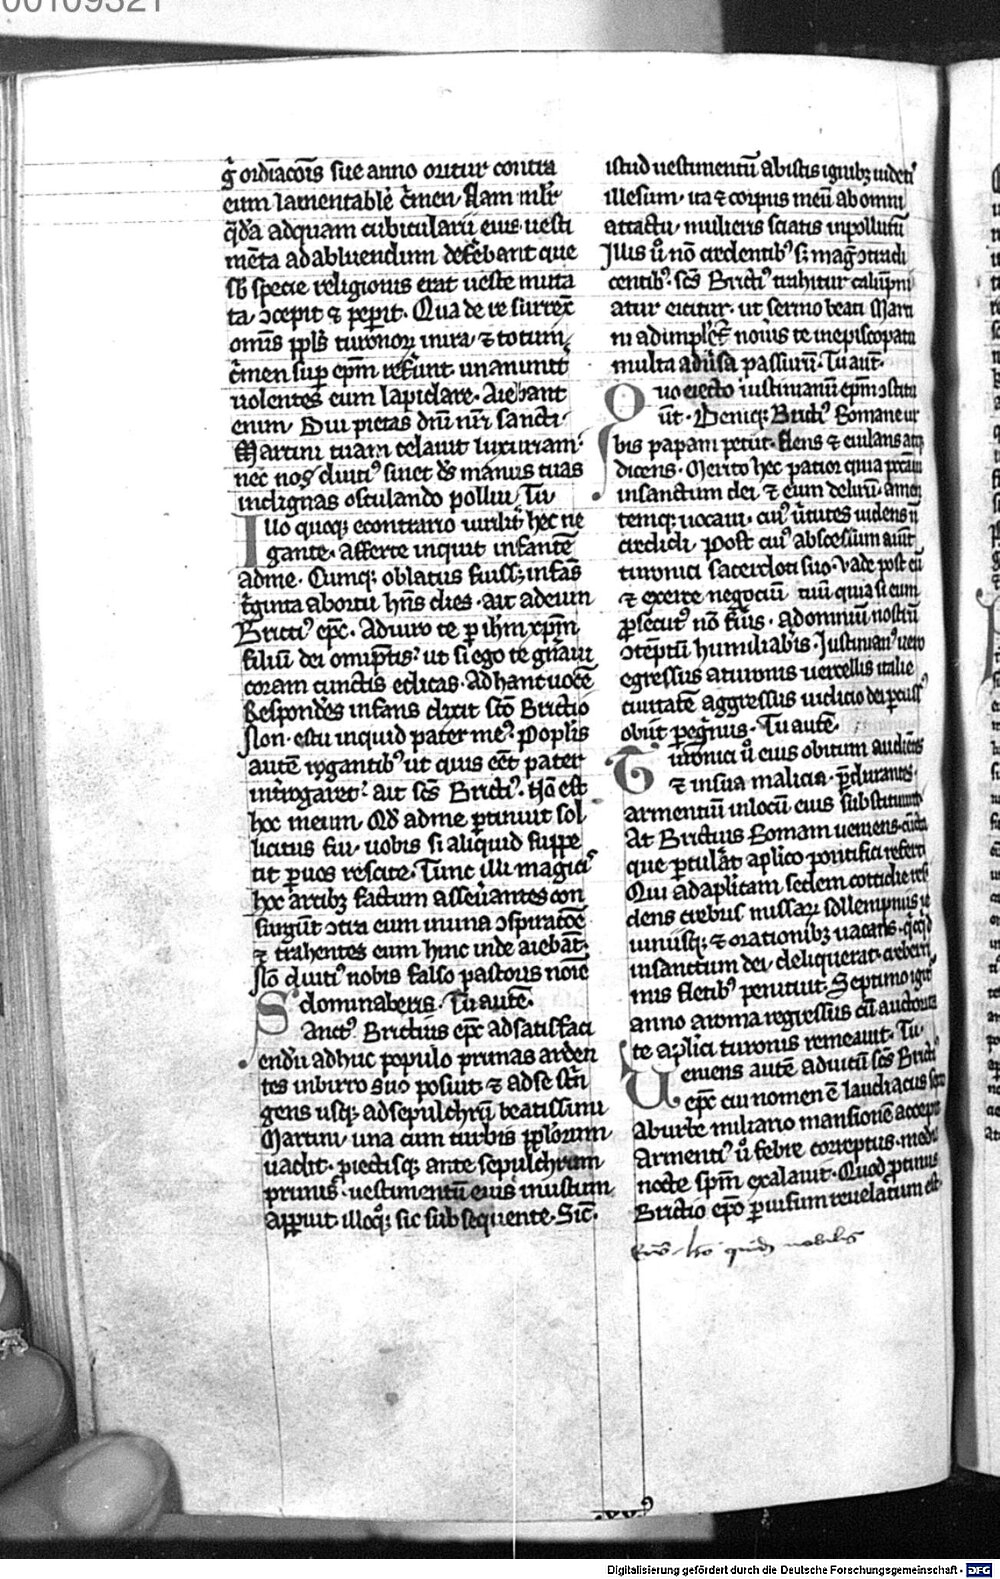 00109321
g̃ ordīacōis sue anno oritur contra
eum lamentabile c̄men. Nam mlr̄
q̄dā ad quam cubicularii eius uesti
mēta ad abluendum defēbant que
sb specie religionis erat ueste muta
ta. ɔcepit ⁊ pepit. Qua de re surrex̄
omīs ppl̄s turonoꝝ in ira. ⁊ totum
c̄men sup ep̄m refūnt unanimit̄
uolentes eum lapidare. Aiebant
enim. Diu pietas dn̄i nr̄i sancti
Martini tuam celauit luxuriam.
nec nos diuti᾽ sinet ds̄ manus tuas
indignas osculando pollui. Tu
Illo quoqꝫ econtrario uirilit̄ hec ne
gante. afferte inquit infantē
ad me. Cumqꝫ oblatus fuissꝫ infās
t̄ginta ab ortu hn̄s dies. ait ad eum
Bricti᾽ ep̄c. Adiuro te p ihm xp̄m
filiū dei omīptis. ut si ego te gn̄aui
coram cunctis edicas. Ad hanc uocē
Respondes infans dixit sc̄o Brictio
Non es tu inquid pater me᾽. Poplis
autē rogantib᾽ ut quis eēt pater
int̄rogaret. ait sc̄s Bricti᾽. Nō est
hoc meum. Qd̄ ad me ptinuit sol
licitus fui. uobis si aliquid suppe
tit p uos rescite. Tunc illi magicis
hoc artibꝫ factum asseuantes con
surgūt ɔtra eum in una ɔspiratōe
⁊ trahentes eum hinc inde aiebāt.
Nō diuti᾽ nobis falso pastoris noīe
dominaberis. Tu autē.
Sanct᾽ Brictius ep̄c ad satisfaci
endū adhuc populo prunas arden
tes in birro suo posuit ⁊ ad se st̄n
gens usqꝫ ad sepulchrū beatissimi
Martini una cum turbis pplorum
uadit. piectisqꝫ ante sepulchrum
prunis. uestimentū eius inustum
appuit. illoqꝫ sic subsequente. Sic
istud uestimentū ab istis ignibꝫ uideti᾽
illesum. ita ⁊ corpus meū ab omni
attactu mulieris sciatis inpollutū
Illis ū nō credentib᾽ sꝫ mag̃ ɔtradi
centib᾽. sc̄s Bricti᾽ trahitur calūpni
atur eicitur. ut sermo beati Marti
ni adimplet᾽. noūis te in episcopatu
multa adūsa passurū. Tu aut̄.
Quo eiecto iustinianū ep̄m ɔstitu
ūt. Deniqꝫ Bricti᾽ Romane ur
bis papam petiit. flens ⁊ eiulans atqꝫ
dicens. Merito hec patior quia peccaui
in sanctum dei. ⁊ eum delirū. amen
temqꝫ uocaui. cui᾽ ūtutes uidens ñ
credidi. Post cui᾽ abscessum aiūt
turonici sacerdoti suo. Vade post eū
⁊ exerce negociū tuū quia si eum
psecut᾽ nō fūis. ad omniū nostrū
ɔtēptū humiliabis. Justinian᾽ uero
egressus a turonis uercellis italie
ciuitatē aggressus iudicio dei pcuss᾽
obiit pegrinus. Tu autē.
Turonici ū eius obitum audiētes
⁊ in sua malicia pdurantes.
armentiū in locū eius substituunt
At Brictius Romam ueniens cūcta
que ptulāt aplico pontifici refert
Qui ad aplicam sedem cottidie resi
dens crebris missaꝝ sollempniis
ieiuniisqꝫ ⁊ orationibꝫ uacans. q̄cq̄d
in sanctum dei deliquerat. creberri
mis fletib᾽ penituit. Septimo igit᾽
anno a roma regressus cū auctorita
te aplici turonis remeauit. Tu
Veniens autē ad uicū sc̄s Bricti᾽
ep̄c cui nomen ē laudiacus sexto
ab urbe miliario mansionē accepit
Armenti᾽ ū febre correptus. media
nocte spm̄ exalauit. Quod ptinus
Brictio epō p uisum reuelatum est.
quidā nobilis
Digitalisierung gefördert durch die Deutsche Forschungsgemeinschaft - DFG